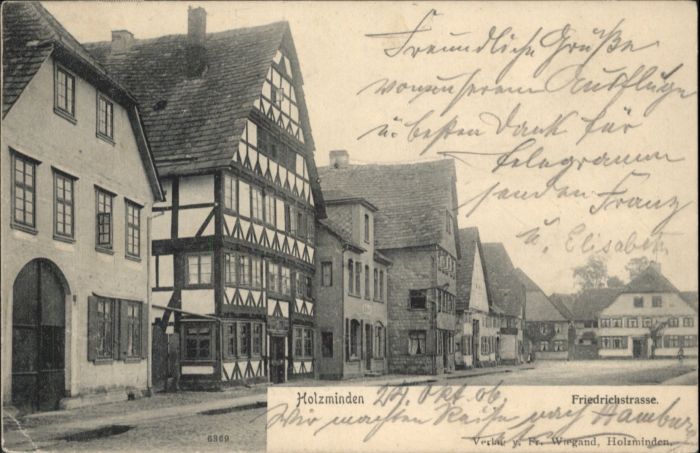 Freundliche Grüße
von unserem Ausfluge
u. besten Dank für
Telegramm
senden Franz
u. Elisabeth
Holzminden 24. Okt. 06.
Friedrichstrasse.
Wir machten Reise nach Hamburg
6369
Verlag v. Fr. Wiegand, Holzminden.